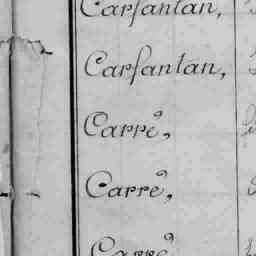 Carfantan,
Carfantan,
Carré,
Carré,
Carré